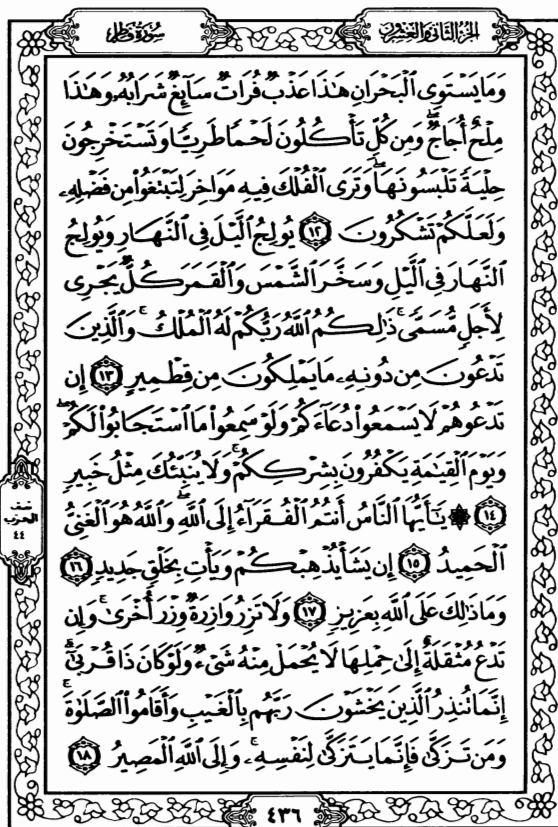 الجزء الثاني والعشرون
سورة فاطر
وَمَا يَسْتَوِى الْبَحْرَانِ هَٰذَا عَذْبٌ فُرَاتٌ سَآئِغٌ شَرَابُهُۥ وَهَٰذَا
مِلْحٌ أُجَاجٌ ۖ وَمِن كُلٍّ تَأْكُلُونَ لَحْمًا طَرِيًّا وَتَسْتَخْرِجُونَ
حِلْيَةً تَلْبَسُونَهَا ۖ وَتَرَى الْفُلْكَ فِيهِ مَوَاخِرَ لِتَبْتَغُوا۟ مِن فَضْلِهِۦ
وَلَعَلَّكُمْ تَشْكُرُونَ ١٢ يُولِجُ الَّيْلَ فِى النَّهَارِ وَيُولِجُ
النَّهَارَ فِى الَّيْلِ وَسَخَّرَ الشَّمْسَ وَالْقَمَرَ كُلٌّ يَجْرِى
لِأَجَلٍ مُّسَمًّى ۚ ذَٰلِكُمُ اللَّهُ رَبُّكُمْ لَهُ الْمُلْكُ ۚ وَالَّذِينَ
تَدْعُونَ مِن دُونِهِۦ مَا يَمْلِكُونَ مِن قِطْمِيرٍ ١٣ إِن
تَدْعُوهُمْ لَا يَسْمَعُوا۟ دُعَآءَكُمْ وَلَوْ سَمِعُوا۟ مَا اسْتَجَابُوا۟ لَكُمْ ۖ
وَيَوْمَ الْقِيَٰمَةِ يَكْفُرُونَ بِشِرْكِكُمْ ۚ وَلَا يُنَبِّئُكَ مِثْلُ خَبِيرٍ
١٤ ۞ يَٰٓأَيُّهَا النَّاسُ أَنتُمُ الْفُقَرَآءُ إِلَى اللَّهِ ۖ وَاللَّهُ هُوَ الْغَنِىُّ
الْحَمِيدُ ١٥ إِن يَشَأْ يُذْهِبْكُمْ وَيَأْتِ بِخَلْقٍ جَدِيدٍ ١٦
وَمَا ذَٰلِكَ عَلَى اللَّهِ بِعَزِيزٍ ١٧ وَلَا تَزِرُ وَازِرَةٌ وِزْرَ أُخْرَىٰ ۚ وَإِن
تَدْعُ مُثْقَلَةٌ إِلَىٰ حِمْلِهَا لَا يُحْمَلْ مِنْهُ شَىْءٌ وَلَوْ كَانَ ذَا قُرْبَىٰٓ ۗ
إِنَّمَا تُنذِرُ الَّذِينَ يَخْشَوْنَ رَبَّهُم بِالْغَيْبِ وَأَقَامُوا۟ الصَّلَوٰةَ ۚ
وَمَن تَزَكَّىٰ فَإِنَّمَا يَتَزَكَّىٰ لِنَفْسِهِۦ ۚ وَإِلَى اللَّهِ الْمَصِيرُ ١٨
نصف
الحزب
٤٤
٤٣٦